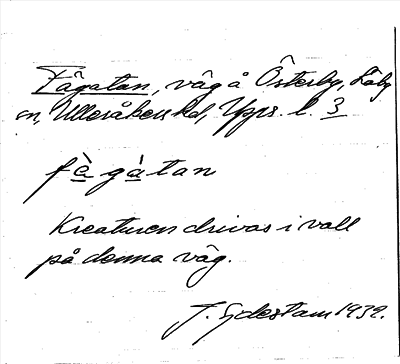 Fägatan, väg å Österby, Läby
sn, Ulleråkers hd, Upps. l. 3
fè̱gá̱tan
Kreaturen drivas i vall
på denna väg.
1939.